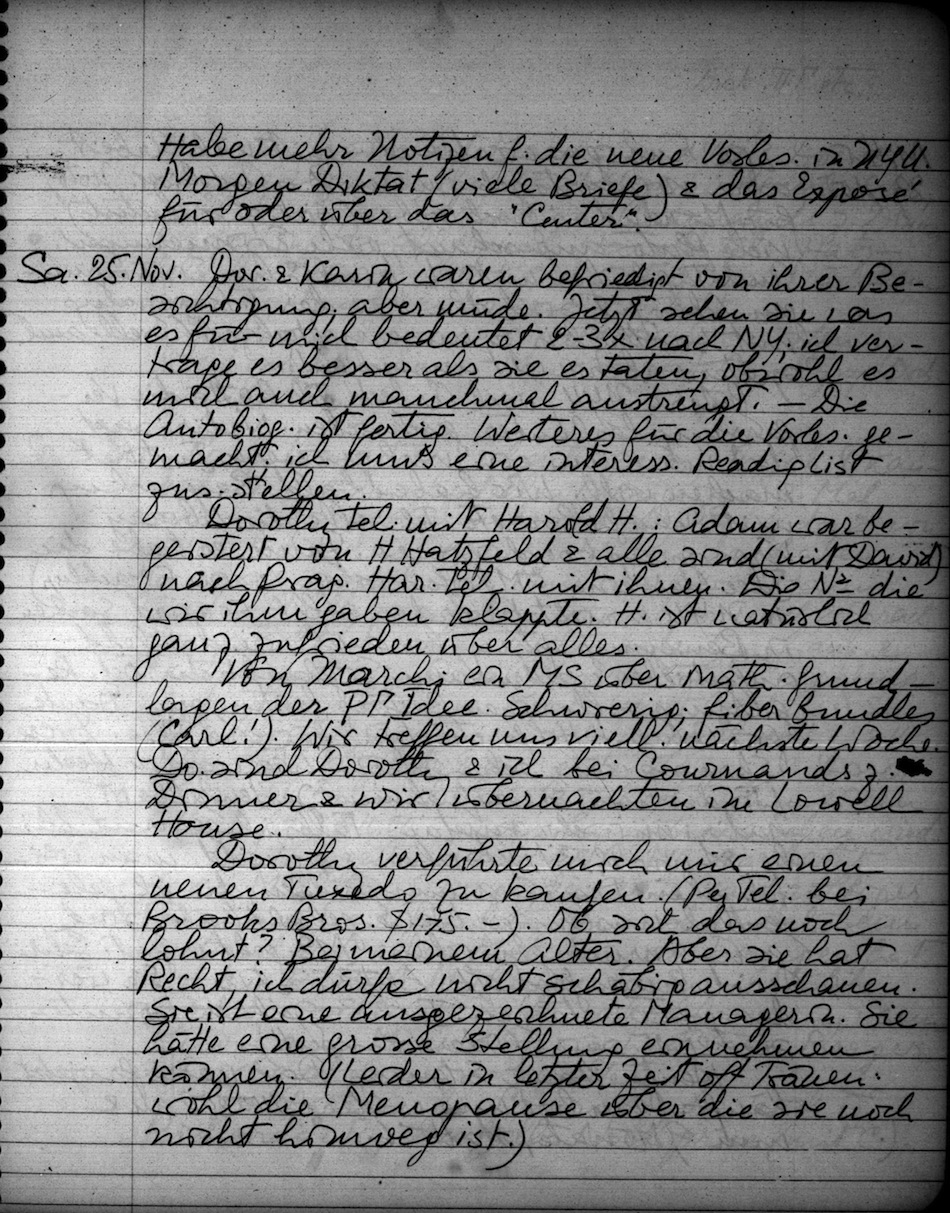 Habe mehr Notizen f. die neue Vorles. in NYU.
Morgen Diktat (viele Briefe) & das Exposé
für oder über das "Center".
Sa. 25. Nov. Dor. & Karin waren befriedigt von ihrer Be-
sichtigung, aber müde. Jetzt sehen sie was
es für mich bedeutet 2-3x nach NY; ich ver-
trage es besser als sie es taten, obwohl es
mich auch manchmal anstrengt. — Die
Autobiog. ist fertig. Weiteres für die Vorles. ge-
macht. ich muss eine interess. Readiglist
zus. stellen.
Dorothy tel. mit Harold H.: Adam war be-
geistert von H Hatzfeld & alle sind (mit David)
nach Prag. Har. tel. mit ihnen. Die Nº die
wir ihm gaben klappte. H. ist natürlich
ganz zufrieden über alles.
Von Marchi ein MS über math. grund-
lagen der PP Idee. Schwierig; fiber bundles
(Carl!). Wir treffen uns viell. nächste Woche.
Do. sind Dorothy & ich bei Cournands z.
Dinner & wir übernachten im Lowell
House.
Dorothy verführte mich mir einen
neuen Tuxedo zu kaufen. (Per Tel. bei
Brooks Bros. $175.-). Ob sich das noch
lohnt? Bei meinem Alter. Aber sie hat
Recht, ich dürfe nicht schäbig ausschauen.
Sie ist eine ausgezeichnete Managerin. Sie
hätte eine grosse Stellung einnehmen
können. (Leider in letzter Zeit oft Tränen:
wohl die Menopause über die sie noch
nicht hinweg ist.)